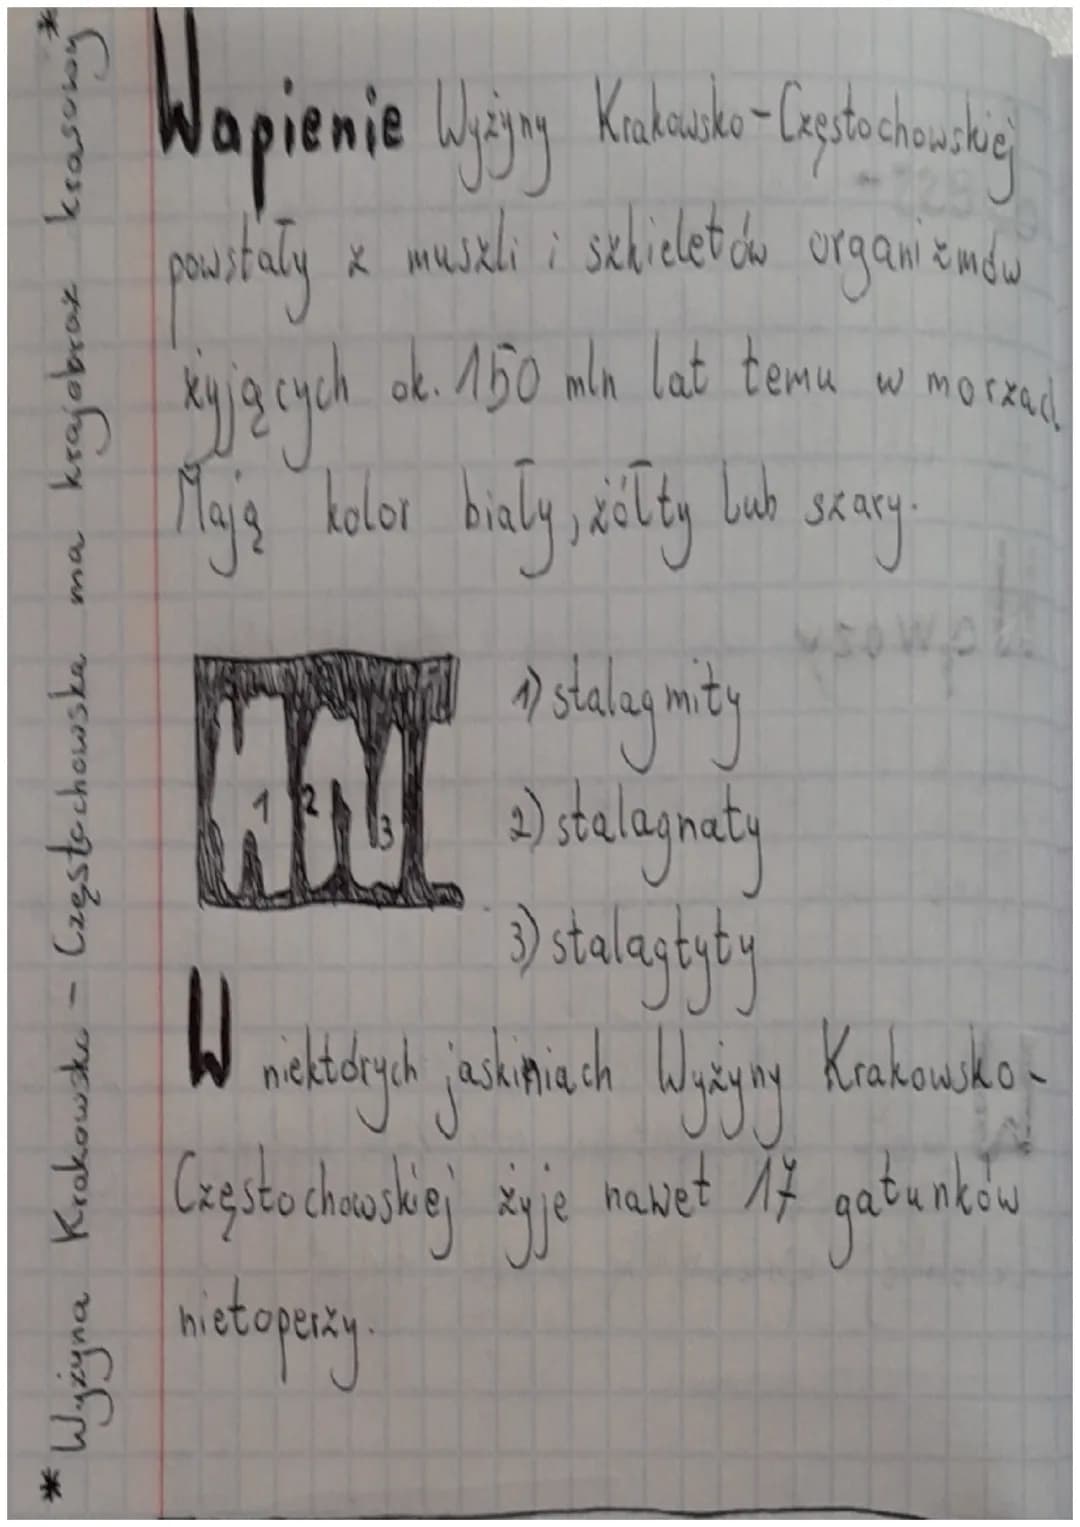 * Wyżyna Krakowsko - Częstochowska ma krajobraz krasowy *
Wapienie Wyżyny Krakowsko-Częstochowskiej
powstały z muszli i szkieletów organizmów
żyjących ok. 150 mln lat temu w morzach.
Mają kolor biały, żółty lub szary.
1) stalagmity
2) stalagnaty
3) stalagtyty
1 2 3
W niektórych jaskiniach Wyżyny Krakowsko-
Częstochowskiej żyje nawet 17 gatunków
nietoperzy.